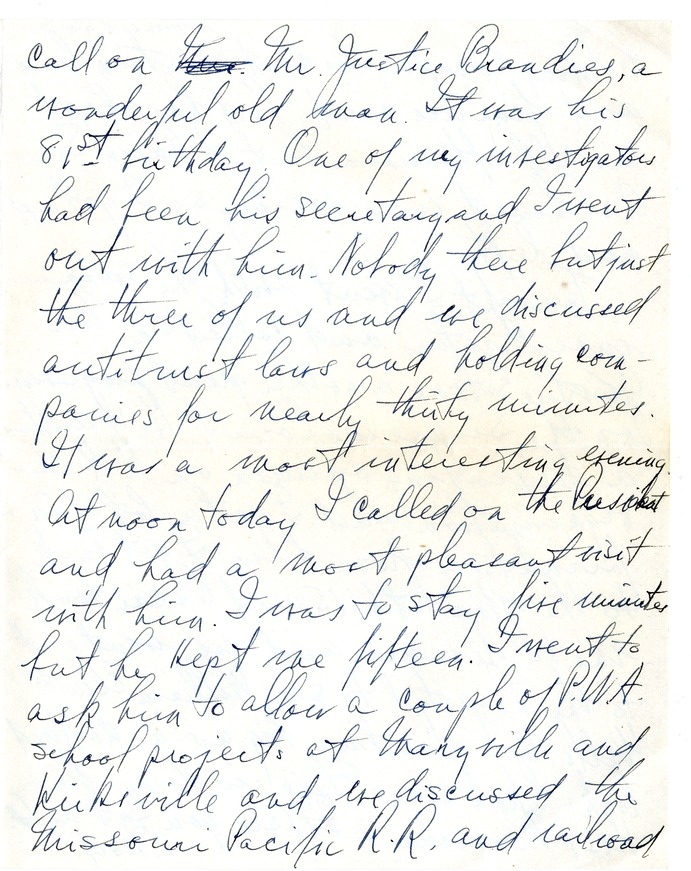 call on Mr. Justice Brandies, a
wonderful old man. It was his
81st birthday. One of my investigators
had been his secretary and I went
out with him. Nobody there but just
the three of us and we discussed
antitrust laws and holding com-
panies for nearly thirty minutes.
It was a most interesting evening.
At noon today I called on the President
and had a most pleasant visit
with him. I was to stay five minutes
but he kept me fifteen. I went to
ask him to allow a couple of P.W.A.
school projects at Maryville and
Kirksville and we discussed the
Missouri Pacific R.R. and railroad